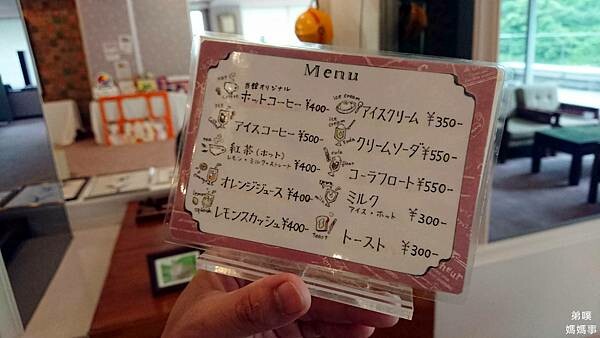 Menu
当館オリジナル
ホットコーヒー ¥400-
アイスコーヒー ¥500-
紅茶(ホット)
レモン・ミルク・ストレート ¥400-
オレンジジュース ¥400-
レモンスカッシュ ¥400-
アイスクリーム ¥350-
クリームソーダ ¥550-
コーラフロート ¥550-
ミルク
アイス・ホット ¥300-
トースト ¥300-
弟噗
媽媽事